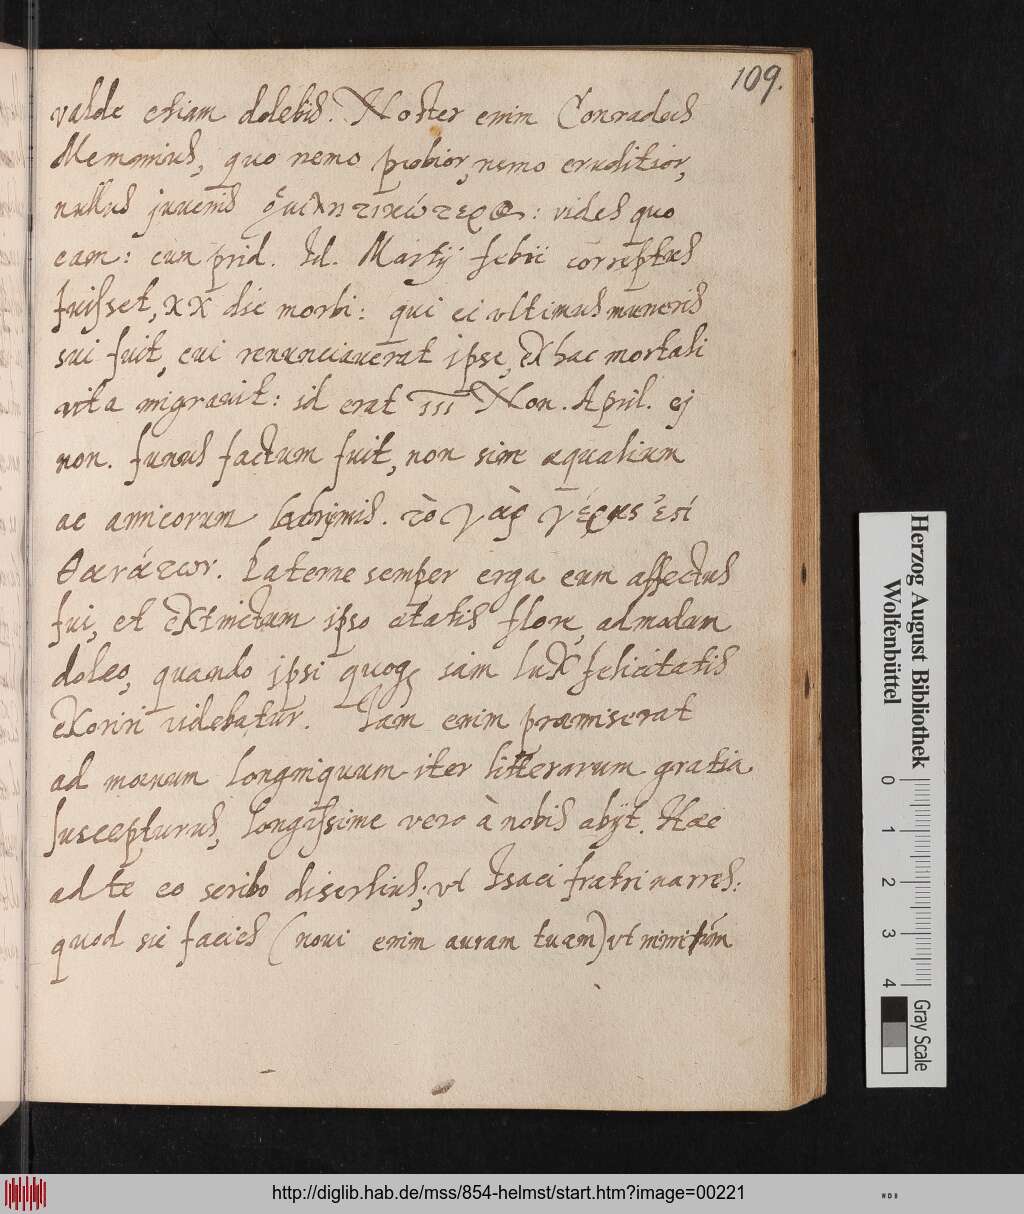 109.
valde etiam dolebis. Noster enim Conradus
Memmius, quo nemo probior, nemo eruditior,
nullus juvenis : vides quo
eam: cum prid. Id. Martij febri correptus
fuisset, XX die morbi: qui ei ultimus muneris
sui fuit, cui renunciaverat ipse, ex hac mortali
vita migravit: id erat III Non. April. ej
non. funus factum fuit, non sine æqualium
ac amicorum lachrymis. τὸ γὰρ γέρας ἐστὶ
θανάτων. Paterne semper erga eum affectus
fui, et extinctum ipso ætatis flore, admodum
doleo, quando ipsi quoq; iam lux felicitatis
exoriri videbatur. Iam enim præmiserat
ad mænum longinquum iter litterarum gratia
suscepturus, longissime vero à nobis abijt. Hæc
ad te eo scribo disertius; vt Isaci fratri narres:
quod sic facies (novi enim curam tuam) vt
Herzog August Bibliothek
Wolfenbüttel
0 1 2 3 4
Gray Scale
http://diglib.hab.de/mss/854-helmst/start.htm?image=00221